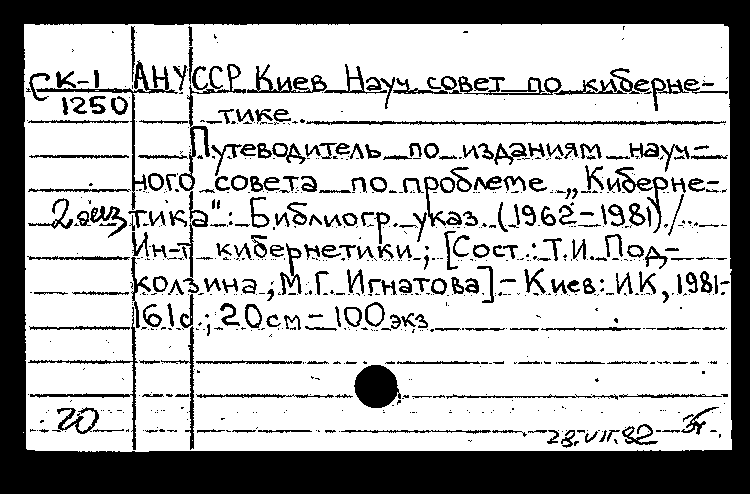 СК-1 АНУССР Киев Науч. совет по киберне-
1250 тике.
Путеводитель по изданиям науч-
ного совета по проблеме „Киберне-
2 экз тика": Библиогр. указ. (1962-1981) /...
Ин-т кибернетики; [Сост.: Т.И. Под-
колзина; М.Г. Игнатова] - Киев: ИК, 1981-
161с.; 20см - 100экз
20
28.VII.82